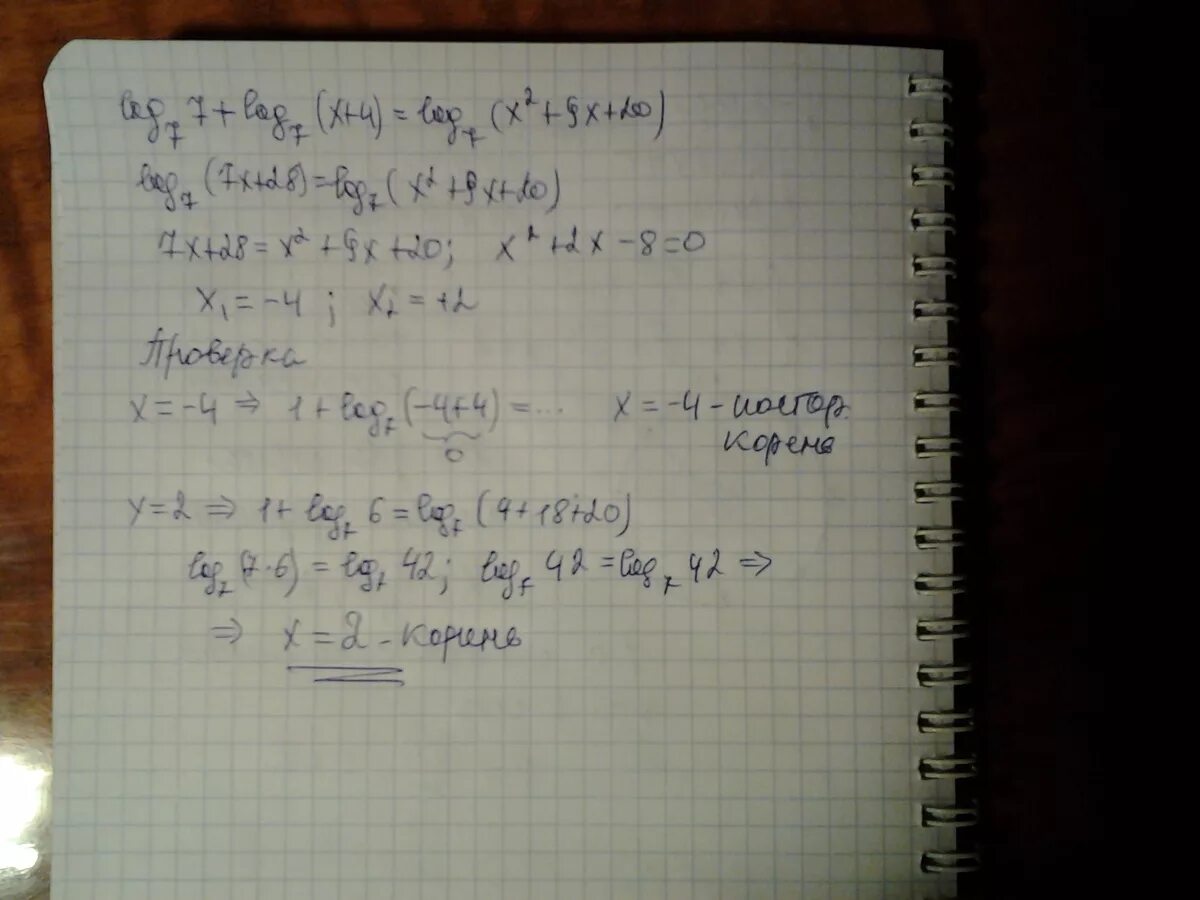 log₇ 7 + log₇ (x+4) = log₇ (x² + 9x + 20)
log₇ (7x+28) = log₇ (x² + 9x + 20)
7x+28 = x² + 9x + 20; x² + 2x - 8 = 0
x₁ = -4 ; x₂ = +2
Проверка
x = -4 ⇒ 1 + log₇ (-4+4) = ... x = -4 - постор.
0 корень
x = 2 ⇒ 1 + log₇ 6 = log₇ (4+18+20)
log₇ (7·6) = log₇ 42; log₇ 42 = log₇ 42 ⇒
⇒ x = 2 - корень